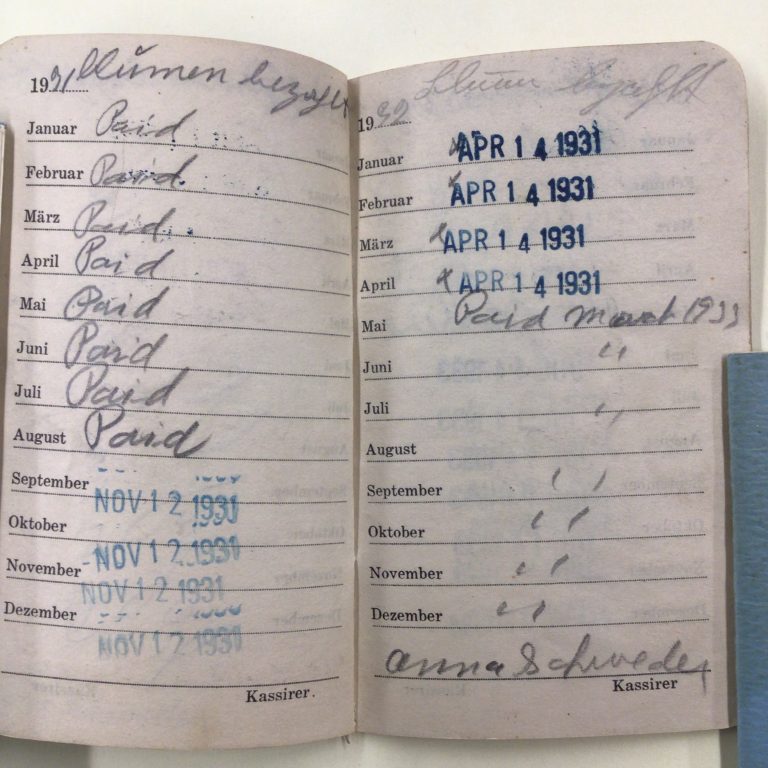 1931 Blumen bezahlt
Januar Paid
Februar Paid.
März Paid.
April Paid
Mai Paid
Juni Paid
Juli Paid
August Paid
September NOV 12 1931
Oktober NOV 12 1931
November NOV 12 1931
Dezember NOV 12 1931
Kassirer.
19 bezahlt
Januar APR 14 1931
Februar APR 14 1931
März APR 14 1931
April APR 14 1931
Mai Paid 1933
Juni "
Juli "
August
September "
Oktober "
November "
Dezember "
Anna Schweder
Kassirer